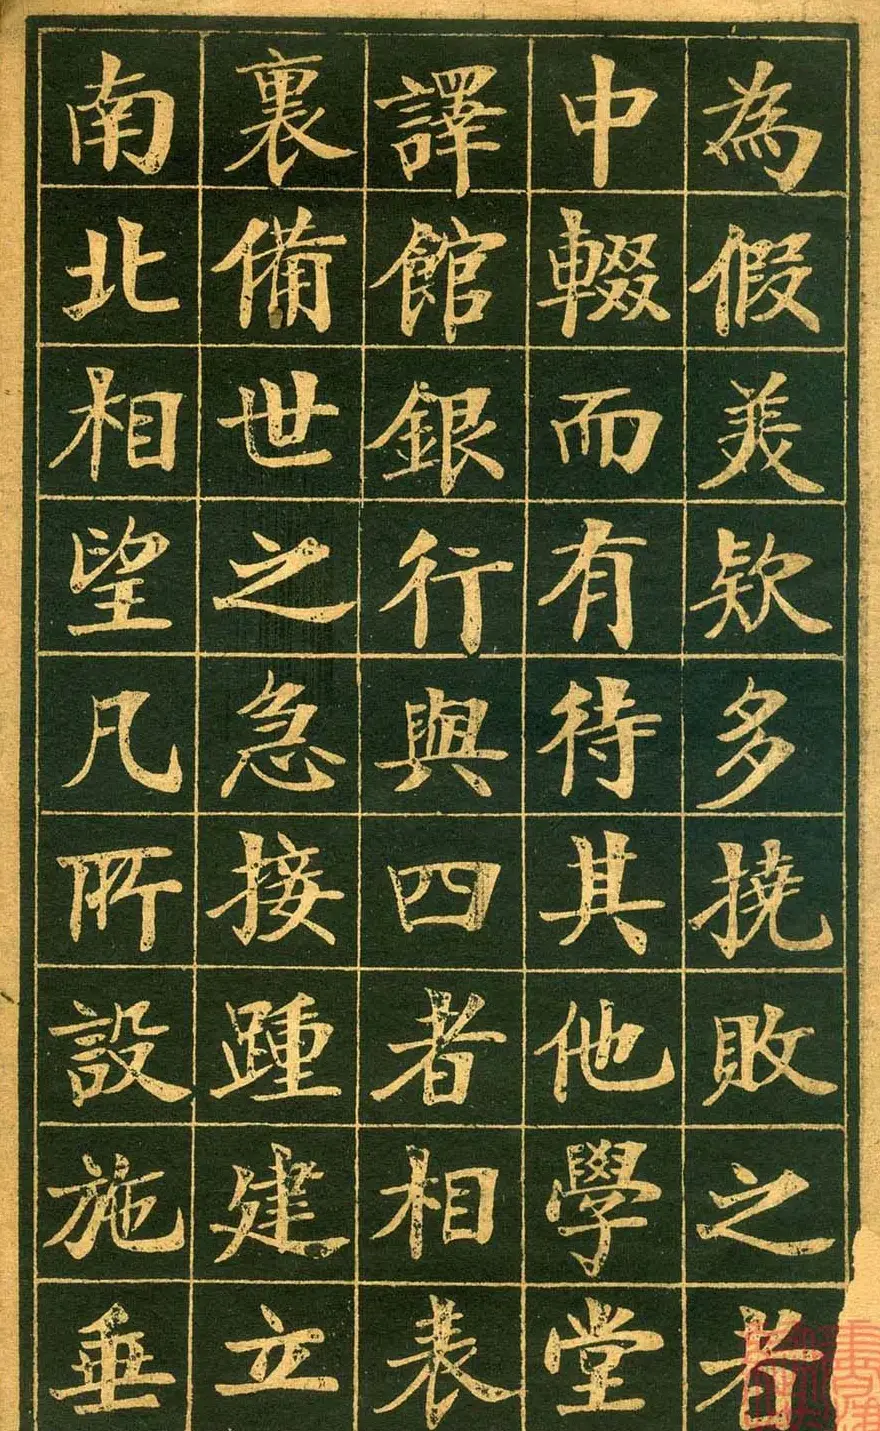 為假美欵多撓敗之若
中輟而有待其他學堂
譯館銀行與四者相表
裏備世之急接踵建立
南北相望凡所設施垂